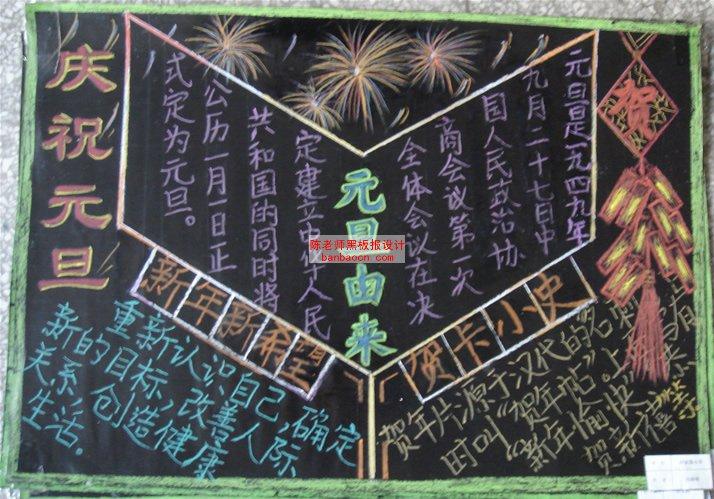 庆祝元旦
元旦由来
元旦是一九四九年
九月二十七日中
国人民政治协
商会议第一次
全体会议在决
定建立中华人民
共和国的同时将
公历一月一日正
式定为元旦。
贺
陈老师黑板报设计
banbaocn.com
新年新希望
重新认识自己,确定
新的目标,改善人际
关系,创造健康
生活。
贺卡小史
贺年片源于汉代的名刺
时叫“贺年帖”。上
“新年愉快”
贺新禧